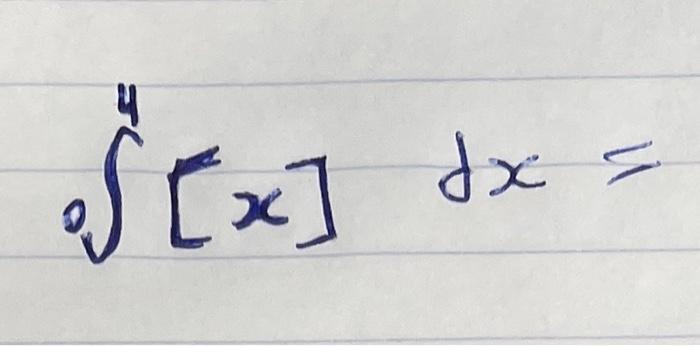 ∫₀⁴ [x] dx =